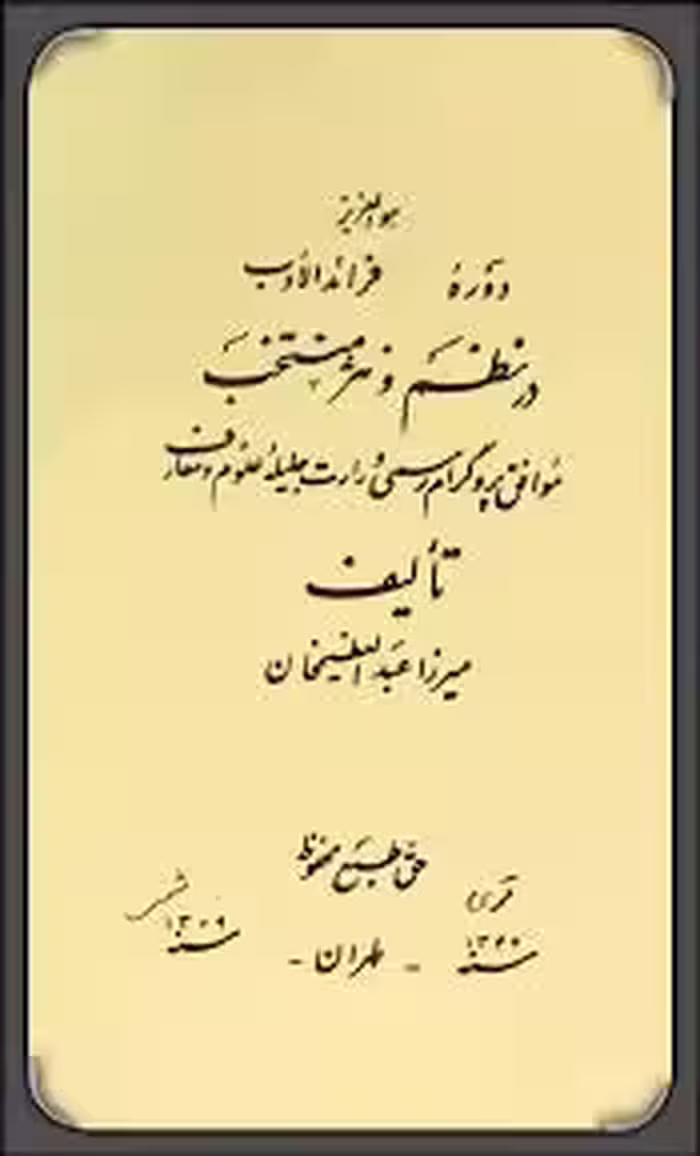 هوالعزیز
دورهٔ فرائدالادب
در نظم و نثر منتخب
موافق پروگرام رسمی وزارت جلیلهٔ علوم و معارف
تألیف
میرزا عبدالعظیمخان
حق طبع محفوظ
قمری
سنه ۱۳۴۰
- طهران -
سنه ۱۳۰۹